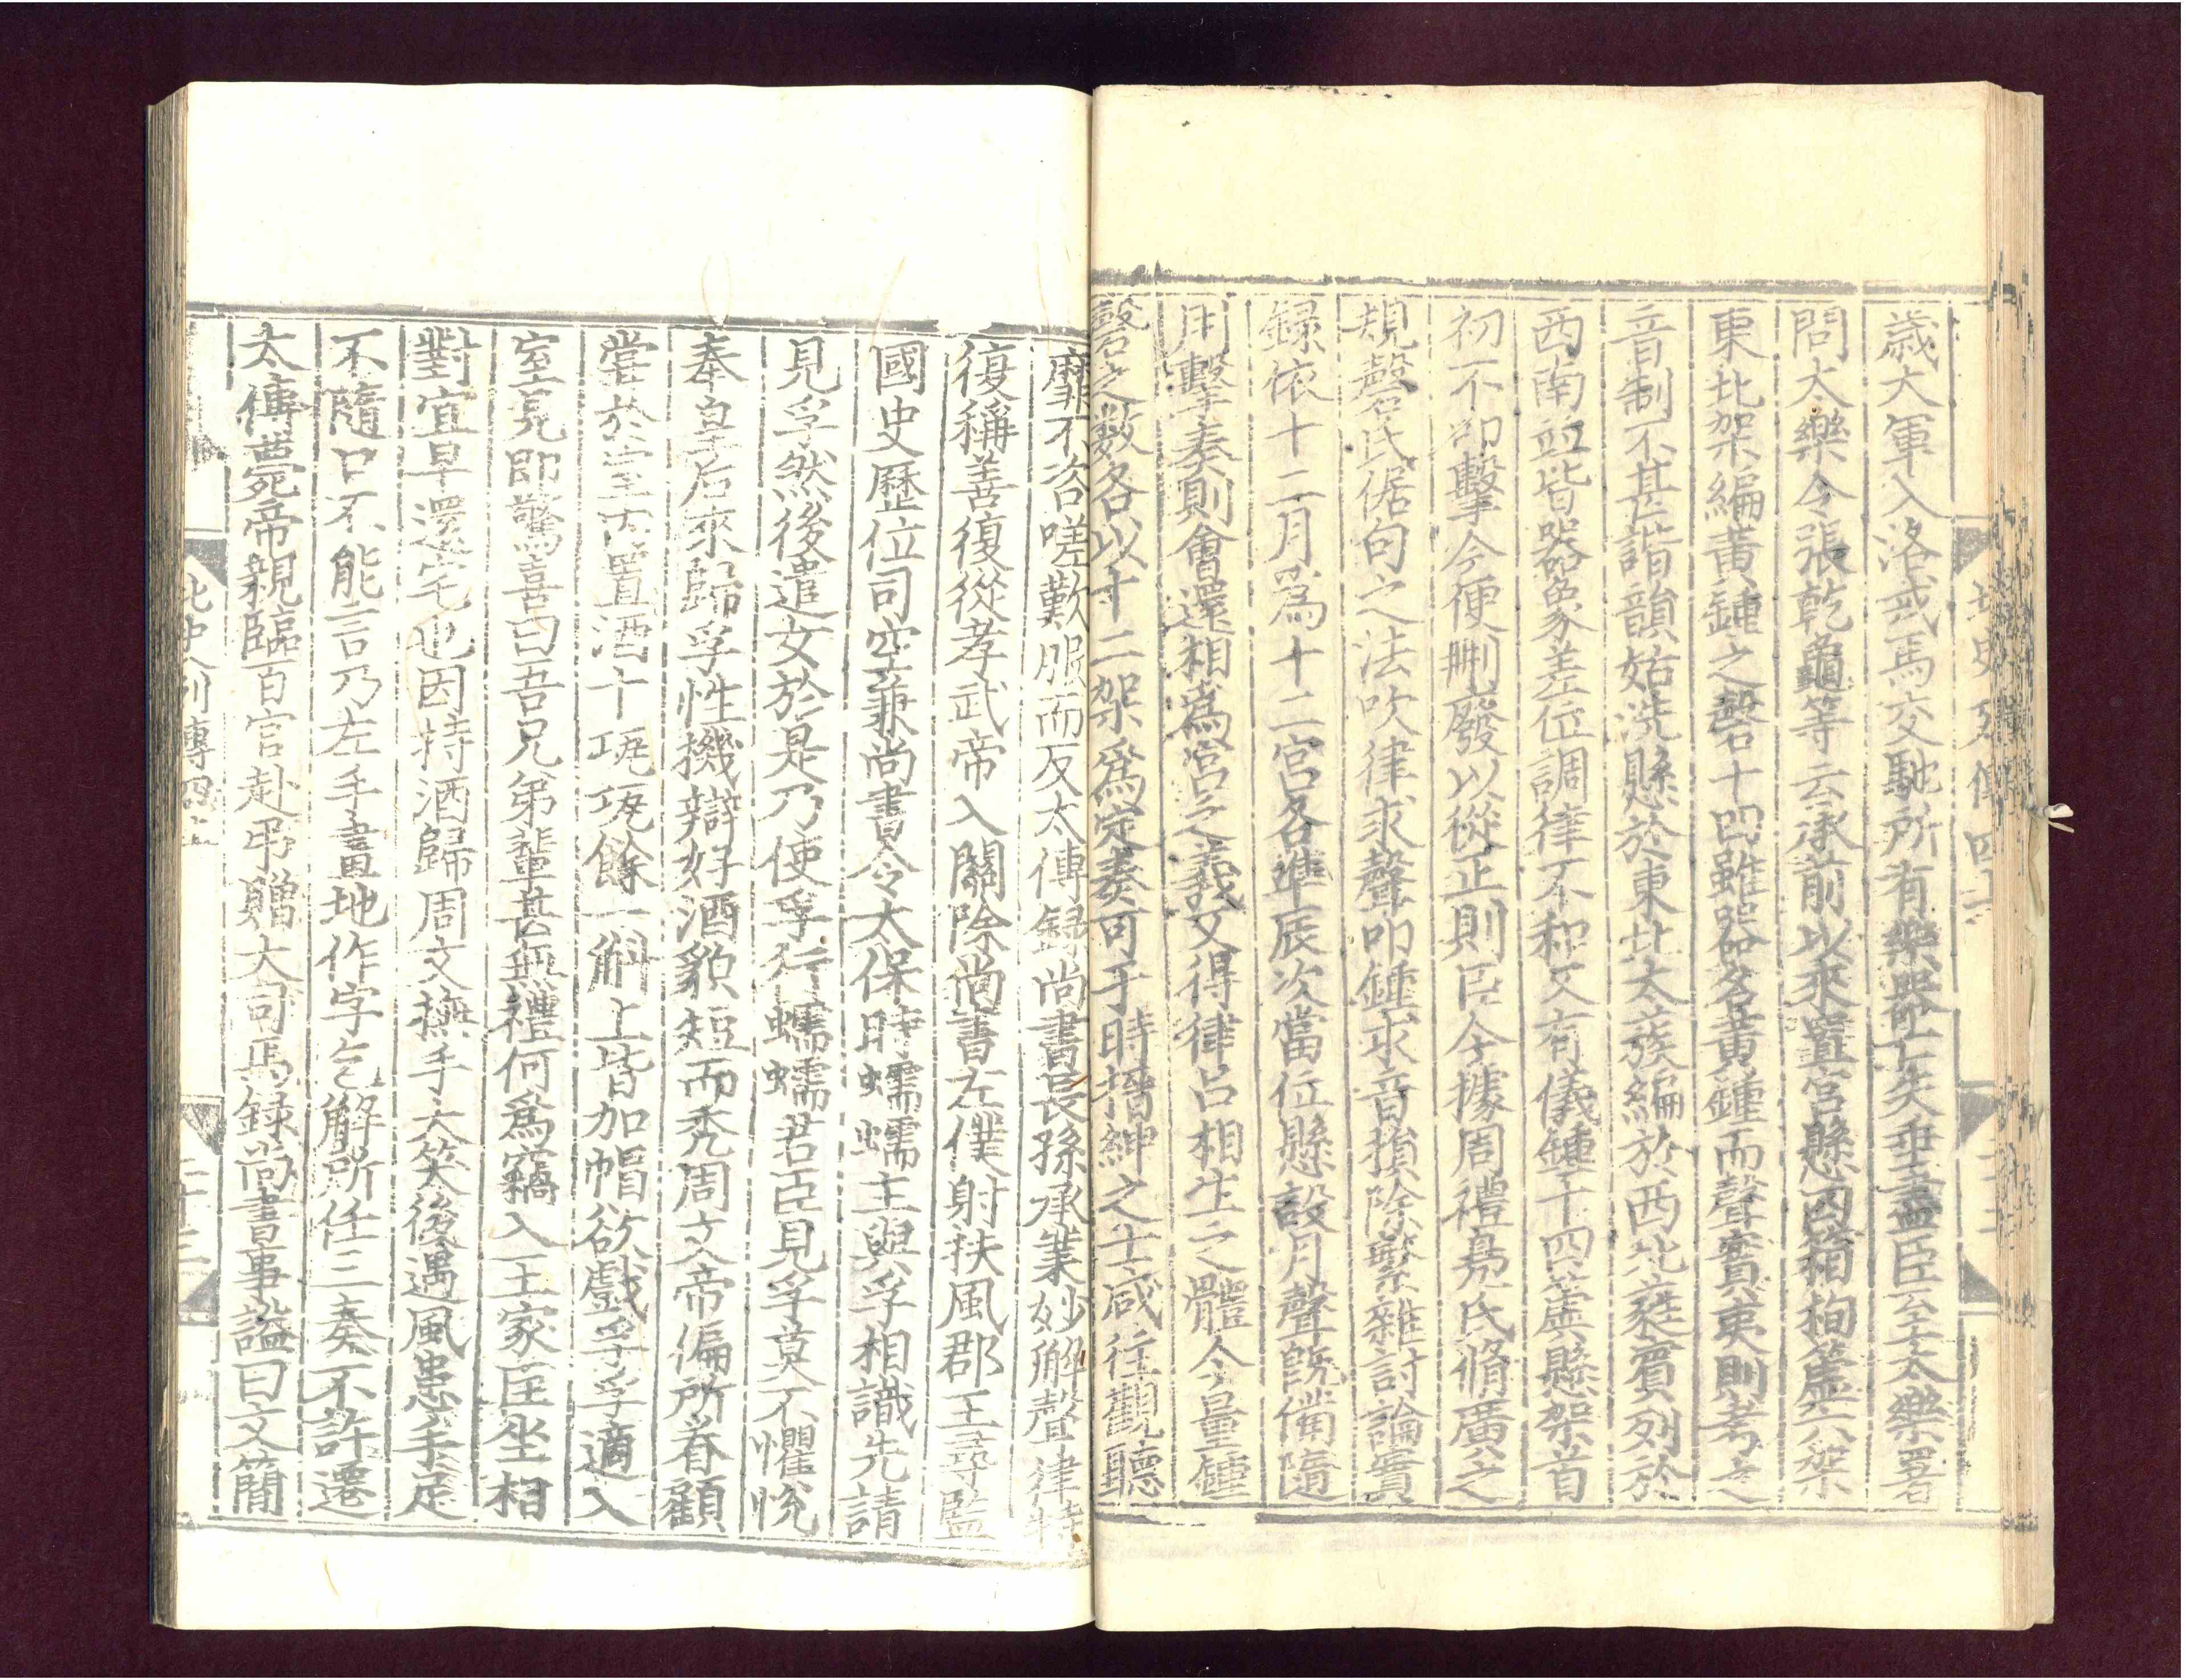 歲大軍入洛戎馬交馳所有樂器亡失垂盡臣至太樂署
問太樂令張乾龜等云承前以來置宮懸四箱栒簴六架
東北架編黃鍾之磬十四雖器名黃鍾而聲實夷則考之
音制不甚諧韻姑洗懸於東北太蔟編於西北蕤賓列於
西南並皆器象差位調律不和又有儀鍾十四虡懸架首
初不叩擊今便刪廢以從正則臣今據周禮鳧氏脩廣之
規磬氏倨句之法吹律求聲叩鍾求音損除繁雜討論實
錄依十二月爲十二宮各準辰次當位懸設月聲旣備隨
用擊奏則會還相爲宮之義又得律呂相生之體今量鍾
磬之數各以十二架爲定奏可于時搢紳之士咸往觀聽
靡不咨嗟歎服而反太傅錄尚書長孫承業妙解聲律特
復稱善復從孝武帝入關除尚書左僕射扶風郡王尋監
國史歷位司空兼尚書令太保時蠕蠕主與孚相識先請
見孚然後遣女於是乃使孚行蠕蠕君臣見孚莫不懽悅
奉皇后來歸孚性機辯好酒貌短而禿周文帝偏所眷顧
嘗於室內置酒十瓨瓨餘一斛上皆加帽欲戲孚孚適入
室見即驚喜曰吾兄弟輩甚無禮何爲竊入王家匡坐相
對宜早還宅也因持酒歸周文撫手大笑後遇風患手足
不隨口不能言乃左手畫地作字乞解所任三奏不許遷
太傅薨帝親臨百官赴弔贈大司馬錄尚書事謚曰文簡
北史列傳四
二十三